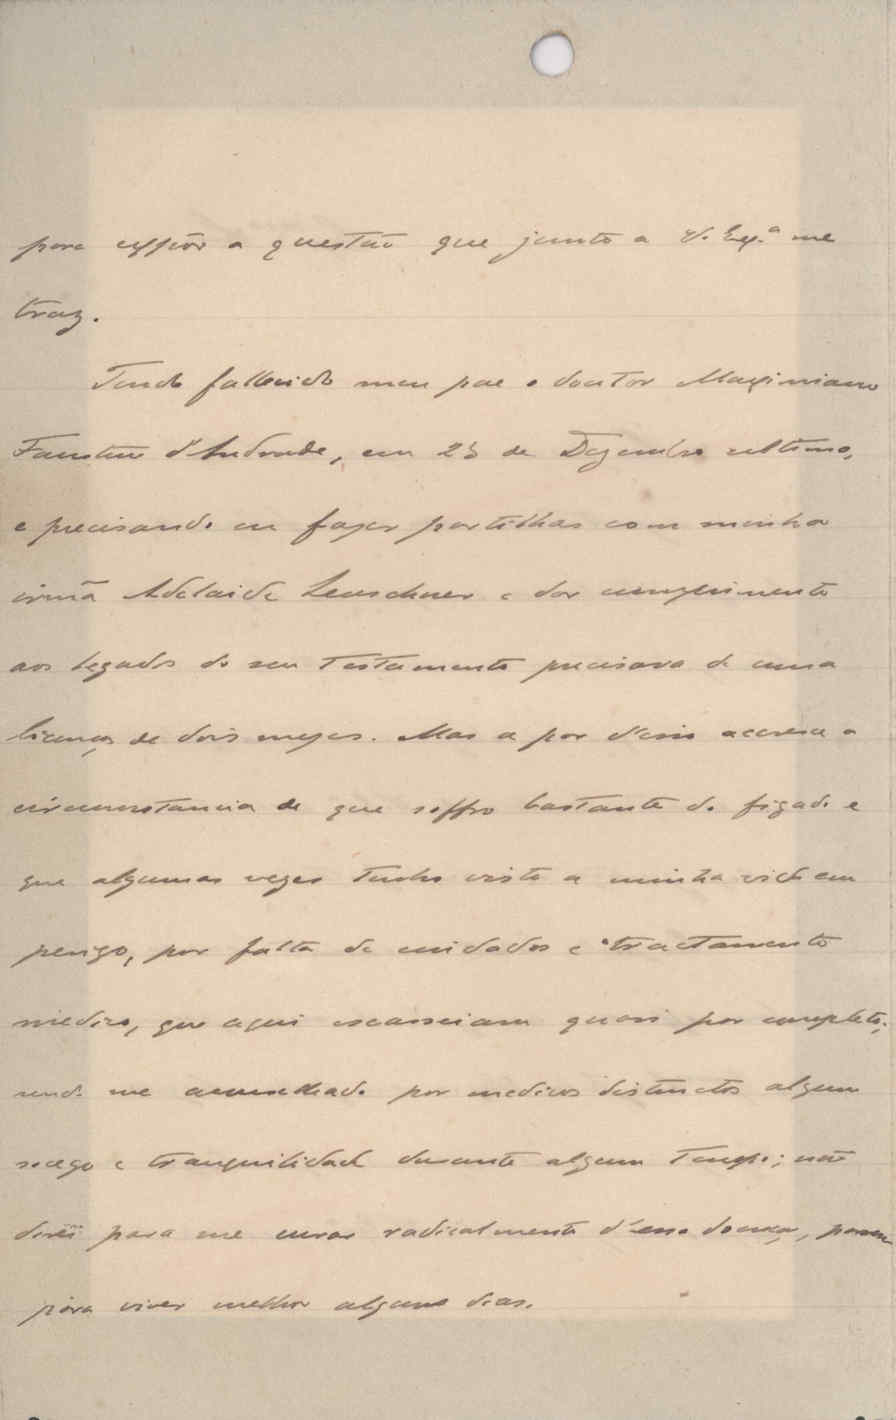 para expôr a questão que junto a V. Exª me
traz.
Tendo fallecido meu pae o doutor Maximiano
Faustino d'Andrade, em 25 de Dezembro ultimo,
e precisando eu fazer partilhas com minha
irmã Adelaide Leuschner e dar cumprimento
aos legados do seu testamento precisava de uma
licença de dois mezes. Mas a par d'isso accresce a
circumstancia de que soffro bastante do figado e
que algumas vezes tenho visto a minha vida em
perigo, por falta de cuidados e tractamento
medico, que aqui escasseiam quasi por completo;
sendo me aconselhado por medicos distinctos algum
socego e tranquilidade durante algum tempo; não
direi para me curar radicalmente d'essa doença, porem
para viver melhor alguns dias.